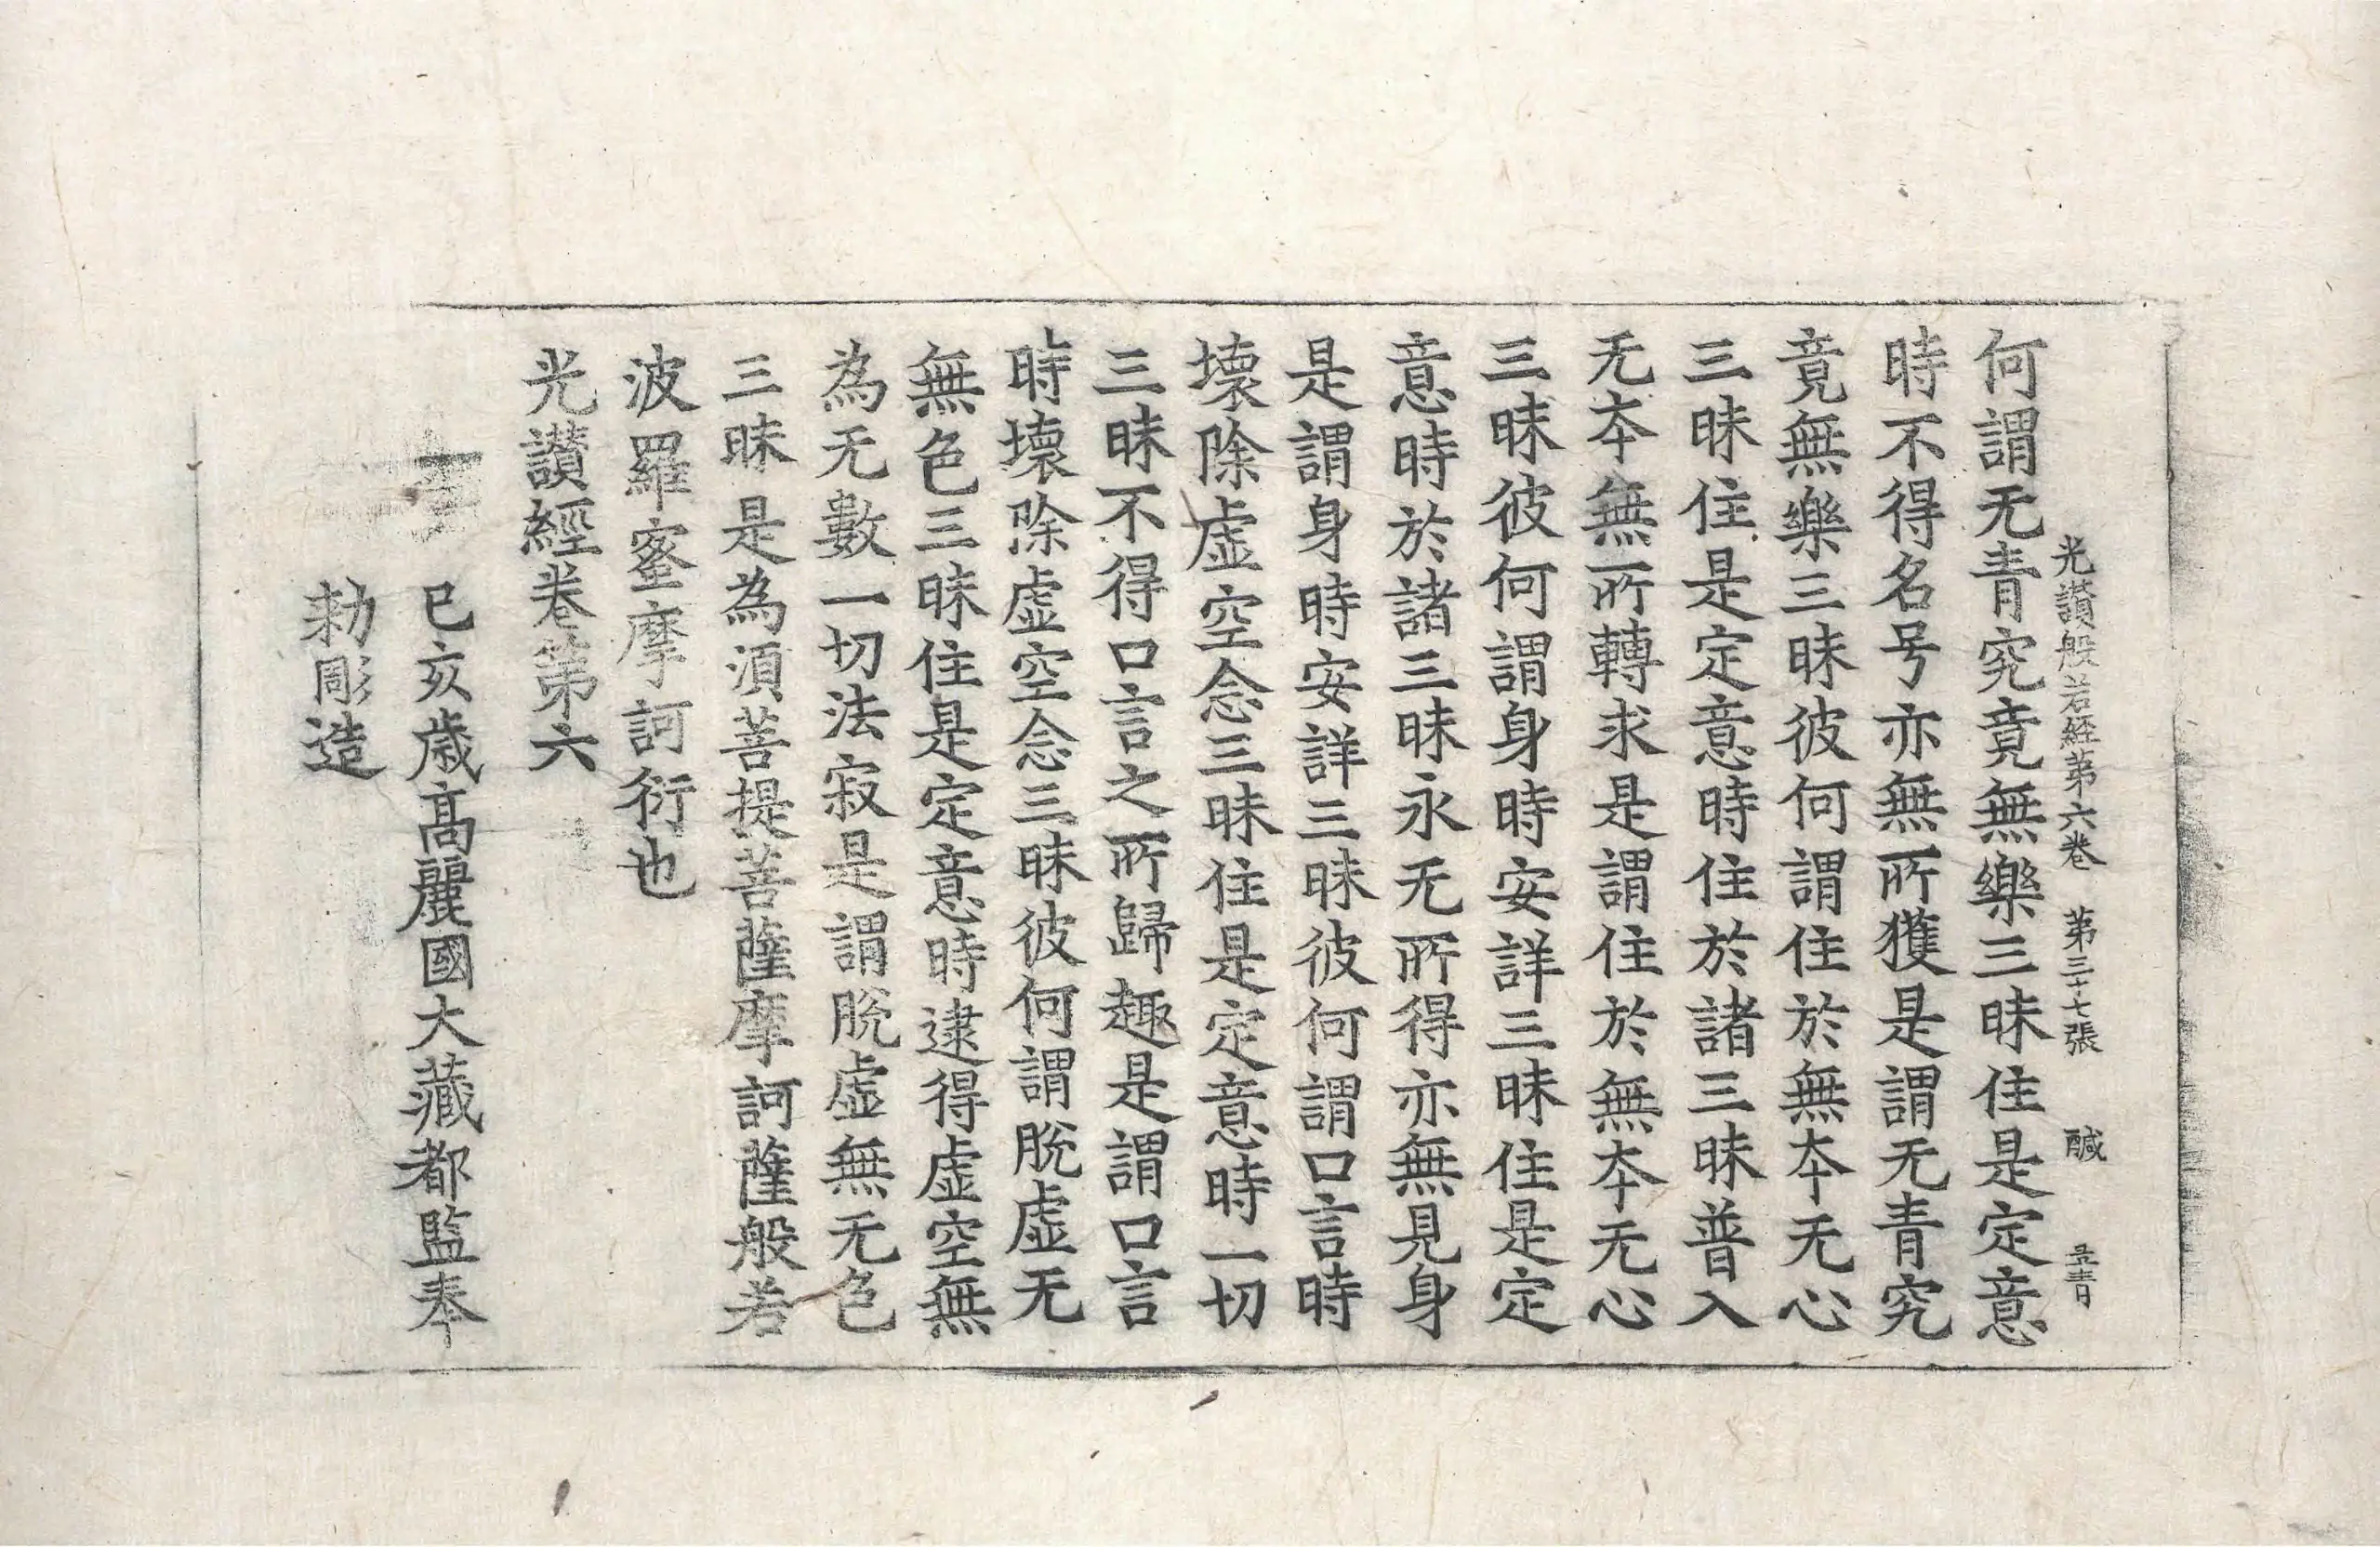 光讃般若経第六卷 第三十七張 醎
何謂无青究竟無樂三昧住是定意
時不得名号亦無所獲是謂无青究
竟無樂三昧彼何謂住於無夲无心
三昧住是定意時住於諸三昧普入
无夲無所轉求是謂住於無夲无心
三昧彼何謂身時安詳三昧住是定
意時於諸三昧永无所得亦無見身
是謂身時安詳三昧彼何謂口言時
壞除虛空念三昧住是定意時一切
三昧不得口言之所歸趣是謂口言
時壞除虛空念三昧彼何謂脫虛无
無色三昧住是定意時逮得虛空無
為无數一切法寂是謂脫虛無无色
三昧是為須菩提菩薩摩訶薩般若
波羅蜜摩訶衍也
光讃經卷第六
己亥歲高麗國大藏都監奉
勅彫造